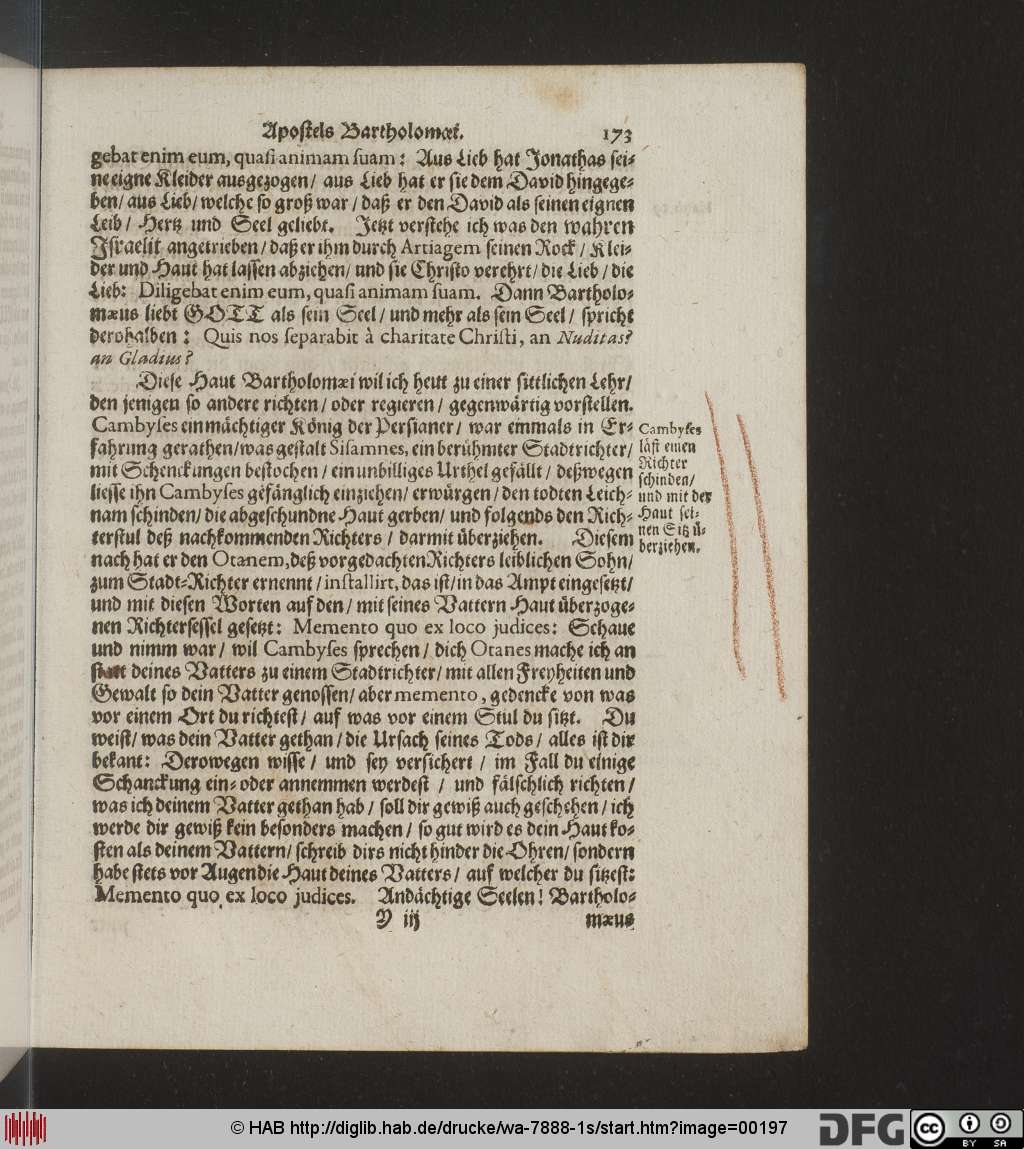 Apostels Bartholomæi. 173
gebat enim eum, quasi animam suam: Aus Lieb hat Jonathas sei-
ne eigne Kleider ausgezogen/ aus Lieb hat er sie dem David hingege-
ben/ aus Lieb/ welche so groß war/ daß er den David als seinen eignen
Leib/ Hertz und Seel geliebt. Jetzt verstehe ich was den wahren
Israelit angetrieben/ daß er ihm durch Artiagem seinen Rock/ Klei-
der und Haut hat lassen abziehen/ und sie Christo verehrt/ die Lieb/ die
Lieb: Diligebat enim eum, quasi animam suam. Dann Bartholo-
mæus liebt GOTT als sein Seel/ und mehr als sein Seel/ spricht
derohalben: Quis nos separabit à charitate Christi, an Nuditas?
an Gladius?
Diese Haut Bartholomæi wil ich heut zu einer sittlichen Lehr/
den jenigen so andere richten/ oder regieren/ gegenwärtig vorstellen.
Cambyses ein mächtiger König der Persianer/ war einmals in Er-
fahrung gerathen/ was gestalt Sisamnes, ein berühmter Stadtrichter/
mit Schenckungen bestochen/ ein unbilliges Urthel gefällt/ deßwegen
liesse ihn Cambyses gefänglich einziehen/ erwürgen/ den todten Leich-
nam schinden/ die abgeschundne Haut gerben/ und folgends den Rich-
terstul deß nachkommenden Richters/ darmit überziehen. Diesem
nach hat er den Otanem, deß vorgedachten Richters leiblichen Sohn/
zum Stadt-Richter ernennt/ installirt, das ist/ in das Ampt eingesetzt/
und mit diesen Worten auf den/ mit seines Vattern Haut überzoge-
nen Richtersessel gesetzt: Memento quo ex loco judices: Schaue
und nimm war/ wil Cambyses sprechen/ dich Otanes mache ich an
statt deines Vatters zu einem Stadtrichter/ mit allen Freyheiten und
Gewalt so dein Vatter genossen/ aber memento, gedencke von was
vor einem Ort du richtest/ auf was vor einem Stul du sitzt. Du
weist/ was dein Vatter gethan/ die Ursach seines Tods/ alles ist dir
bekant: Derowegen wisse/ und sey versichert/ im Fall du einige
Schanckung ein- oder annemmen werdest/ und fälschlich richten/
was ich deinem Vatter gethan hab/ soll dir gewiß auch geschehen/ ich
werde dir gewiß kein besonders machen/ so gut wird es dein Haut ko-
sten als deinem Vattern/ schreib dirs nicht hinder die Ohren/ sondern
habe stets vor Augen die Haut deines Vatters/ auf welcher du sitzest:
Memento quo ex loco judices. Andächtige Seelen! Bartholo-
Y iij mæus
Cambyses
läst einen
Richter
schinden/
und mit der
Haut sei-
nen Sitz ü-
berziehen.
© HAB http://diglib.hab.de/drucke/wa-7888-1s/start.htm?image=00197
DFG
cc BY SA